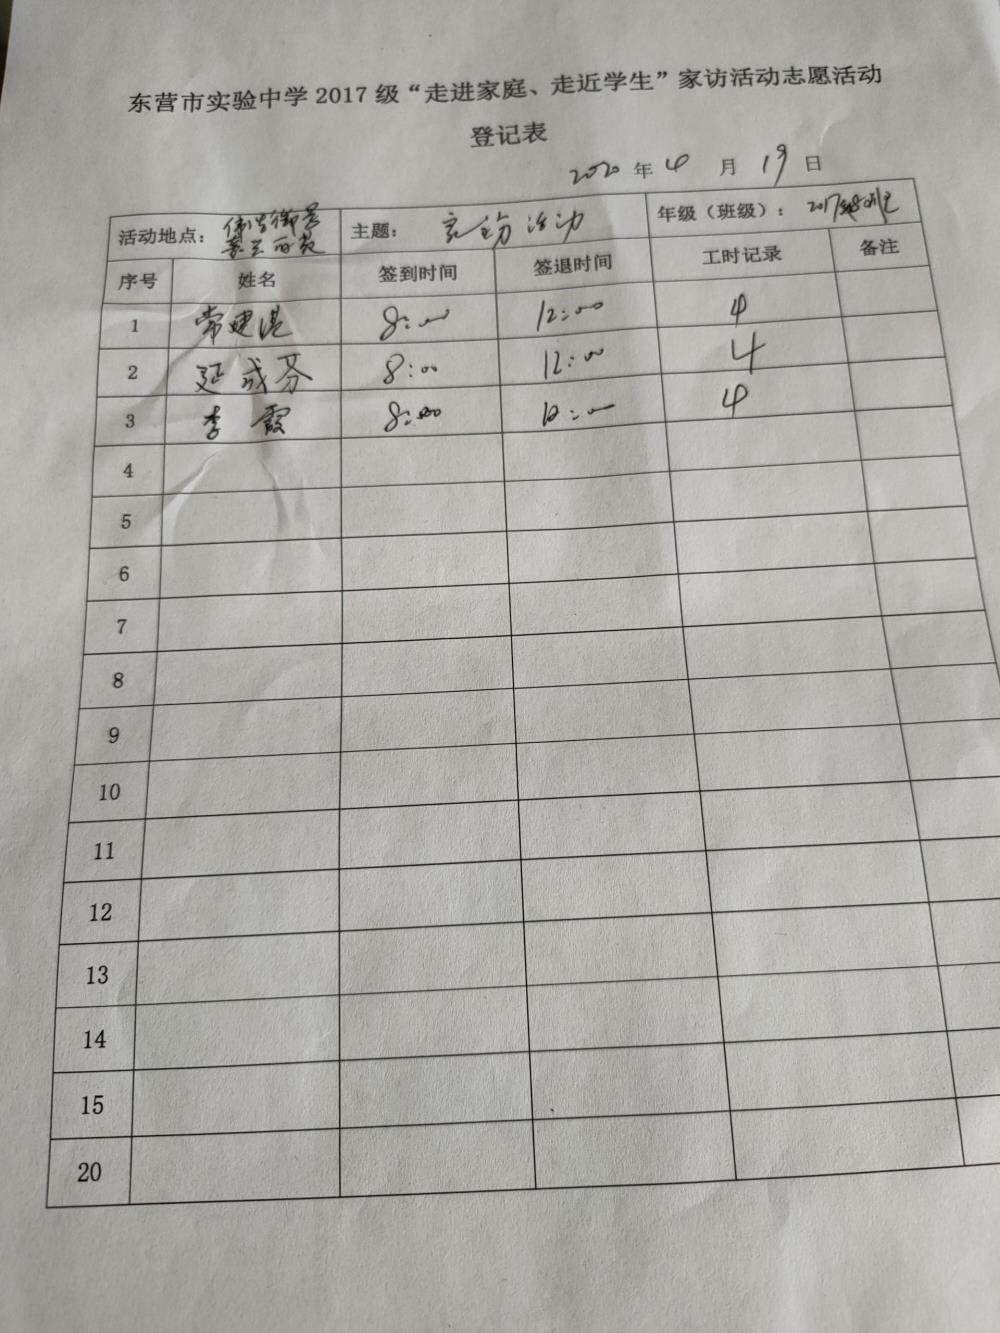 东营市实验中学 2017 级“走进家庭、走近学生”家访活动志愿活动
登记表
2020 年 4 月 19 日
活动地点： 主题： 家访活动 年级（班级）： 2017级8班
序号 姓名 签到时间 签退时间 工时记录 备注
1 常建洪 8:00 12:00 4
2 延成芬 8:00 12:00 4
3 李霞 8:00 12:00 4
4
5
6
7
8
9
10
11
12
13
14
15
20